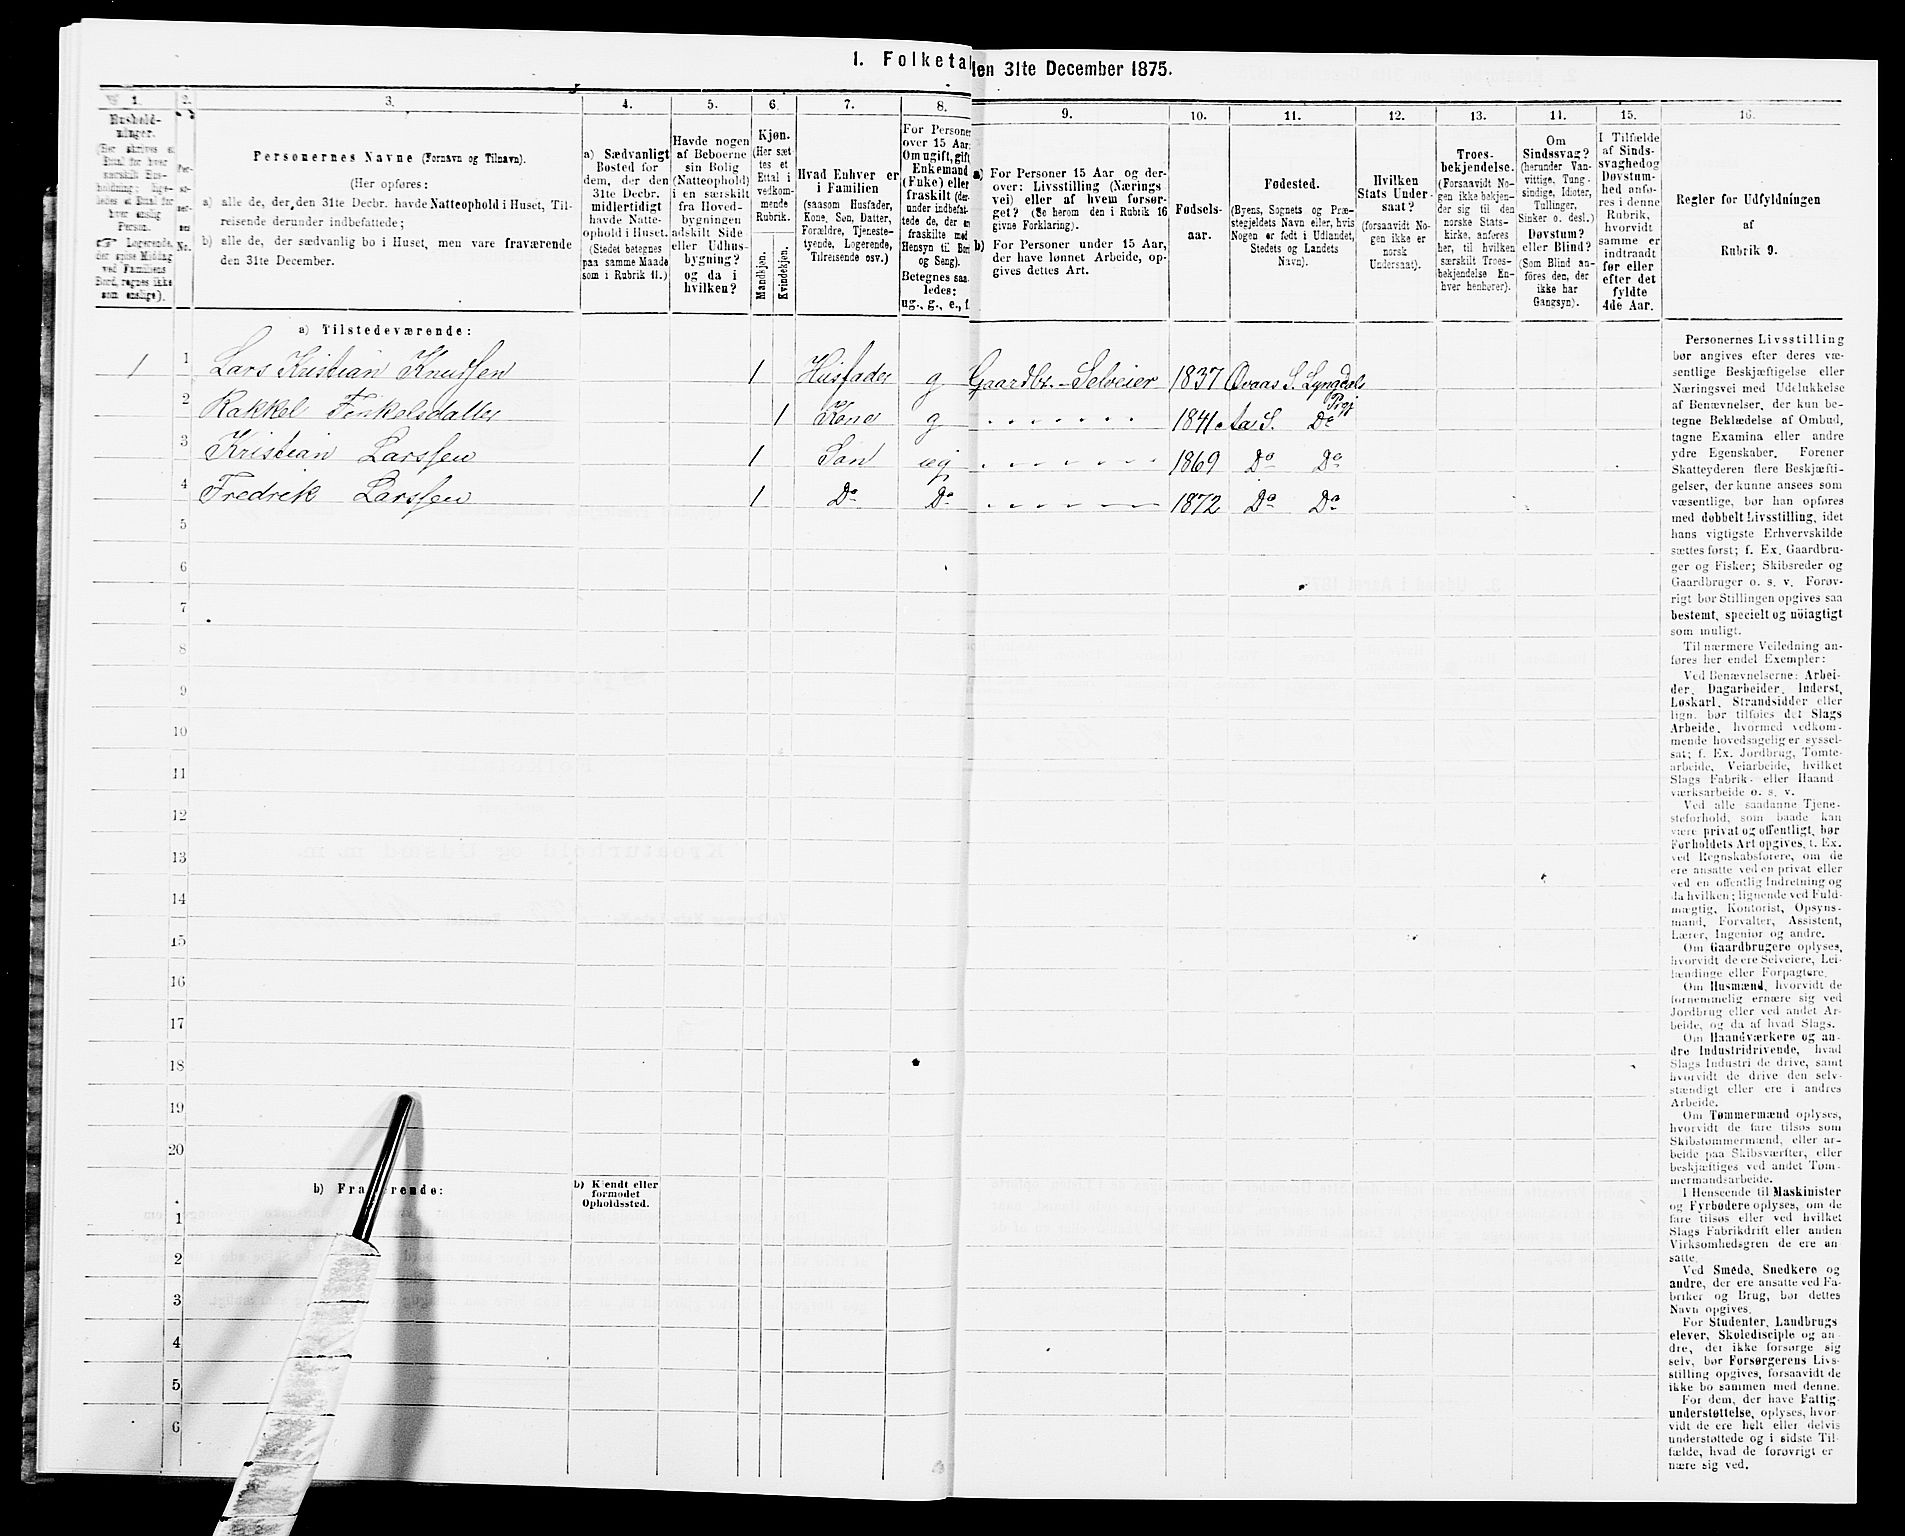 1. Folketal den 31te December 1875.
1. 2. 3. 4. 5. 6. 7. 8. 9. 10. 11. 12. 13. 14. 15. 16.
Hushold-
ninger.
(Her skrives et
Ettal for hver
særskilt Hus-
holdning; lige-
ledes et Ettal for
hver enslig
Person.
Logerende,
der spise Middag
ved Familiens
Bord, regnes ikke
som enslige).
No.
Personernes Navne (Fornavn og Tilnavn).
(Her opføres:
a) alle de, der, den 31te Decbr. havde Natteophold i Huset, Til-
reisende derunder indbefattede;
b) alle de, der sædvanlig bo i Huset, men vare fraværende
den 31te December.
a) Sædvanligt
Bosted for
dem, der den
31te Decbr.
midlertidigt
havde Natte-
ophold i Huset.
(Stedet betegnes
paa samme Maade
som i Rubrik 11.)
Havde nogen
af Beboerne
sin Bolig
(Natteophold)
i en særskilt
fra Hoved-
bygningen
adskilt Side
eller Udhus-
bygning?
og da i
hvilken?
Kjøn.
(Her sæt-
tes et
Ettal i
vedkom-
mende
Rubrik.
Mandkjøn.
Kvindekjøn.
Hvad Enhver er
i Familien
(saasom Husfader,
Kone, Søn, Datter,
Forældre, Tjeneste-
tyende, Logerende,
Tilreisende osv.)
For Personer
over 15 Aar:
Om ugift, gift,
Enkemand
(Enke) eller
fraskilt (der-
under indbefat-
tede de, der ere
fraskilte med
Hensyn til Bord
og Seng).
Betegnes saa-
ledes:
ug., g., e., f.
a) For Personer 15 Aar og der-
over: Livsstilling (Nærings-
vei) eller af hvem forsør-
get? (Se herom den i Rubrik 16
givne Forklaring).
b) For Personer under 15 Aar,
der have lønnet Arbeide, op-
gives dettes Art.
Fødsels-
aar.
Fødested.
(Byens, Sognets og Præ-
stegjeldets Navn eller, hvis
Nogen er født i Udlandet,
Stedets og Landets
Navn).
Hvilken
Stats Under-
saat?
(forsaavidt No-
gen ikke er
norsk
Undersaat).
Troes-
bekjendelse.
(Forsaavidt No-
gen ikke bekjen-
der sig til den
norske Stats-
kirke, anføres
her, til hvilken
særskilt Troes-
bekjendelse En-
hver henhører).
Om
Sindssvag?
(herunder Van-
vittige, Tung-
sindige, Idioter,
Tullinger,
Sinker o. desl.)
Døvstum?
eller Blind?
(Som Blind an-
føres den, der
ikke har
Gangsyn).
I Tilfælde
af Sinds-
svaghed og
Døvstum-
hed anfø-
res i denne
Rubrik,
hvorvidt
samme er
indtraadt
før eller
efter det
fyldte
4de Aar.
Regler for Udfyldningen
af
Rubrik 9.
a) Tilstedeværende:
1 1 Lars Kristian Knudsen 1 Husfader g Gaardbr. - Selveier 1837 Qvaas S. Lyngdals Prgj
2 Rakkel Tenkelsdatter 1 Kone g 1841 Aa S. Do
3 Kristian Larssen 1 Søn ug 1869 Do Do
4 Fredrik Larssen 1 Do Do 1872 Do Do
5
6
7
8
9
10
11
12
13
14
15
16
17
18
19
20
b) Fraværende:
b) Kjendt eller
formodet
Opholdssted.
1
2
3
4
5
6
Personernes Livsstilling
bør angives efter deres væ-
sentlige Beskjæftigelse eller
Næringsvei med Udelukkelse
af Benævnelser, der kun be-
tegne Beklædelse af Ombud,
tagne Examina eller andre
ydre Egenskaber. Forener
Skatteyderen flere Beskjæfti-
gelser, der kunne ansees som
væsentlige, bør han opføres
med dobbelt Livsstilling, idet
hans vigtigste Erhvervskilde
sættes først; f. Ex. Gaardbru-
ger og Fisker; Skibsreder og
Gaardbruger o. s. v. Forøv-
rigt bør Stillingen opgives saa
bestemt, specielt og nöiagtigt
som muligt.
Til nærmere Veiledning an-
føres her endel Exempler:
Ved Benævnelserne: Arbei-
der, Dagarbeider, Inderst,
Løskarl, Strandsidder eller
lign. bør tilføies det Slags
Arbeide, hvormed vedkom-
mende hovedsagelig er syssel-
sat; f. Ex. Jordbrug, Tomte-
arbeide, Veiarbeide, hvilket
Slags Fabrik- eller Haand-
værksarbeide o. s. v.
Ved alle saadanne Tjene-
steforhold, som baade kan
være privat og offentligt, bør
Forholdets Art opgives, t. Ex.
ved Regnskabsførere, om de
ere ansatte ved en privat eller
ved en offentlig Indretning og
da hvilken; lignende ved Fuld-
mægtig, Kontorist, Opsyns-
mand, Forvalter, Assistent,
Lærer, Ingeniør og andre.
Om Gaardbrugere oplyses,
hvorvidt de ere Selveiere, Lei-
lændinge eller Forpagtere.
Om Husmænd, hvorvidt de
fornemmelig ernære sig ved
Jordbrug eller ved andet Ar-
beide, og da af hvad Slags.
Om Haandværkere og an-
dre Industridrivende, hvad
Slags Industri de drive, samt
hvorvidt de drive den selv-
stændigt eller ere i andres
Arbeide.
Om Tømmermænd oplyses,
hvorvidt de fare tilsøs som
Skibstømmermænd, eller ar-
beide paa Skibsværfter, eller
beskjæftiges ved andet Tøm-
mermandsarbeide.
I Henseende til Maskinister
og Fyrbødere oplyses, om de
fare tilsøs eller ved hvilket
Slags Fabrikdrift eller anden
Virksomhedsgren de ere an-
satte.
Ved Smede, Snedkere og
andre, der ere ansatte ved Fa-
briker og Brug, bør dettes
Navn opgives.
For Studenter, Landbrugs-
elever, Skoledisciple og an-
dre, der ikke forsørge sig
selv, bør Forsørgerens Livs-
stilling opgives, forsaavidt de
ikke bo sammen med denne.
For dem, der have Fattig-
understøttelse, oplyses, hvor-
vidt de ere helt eller delvis
understøttede og i sidste Til-
fælde, hvad de forøvrigt er-
nære sig ved.